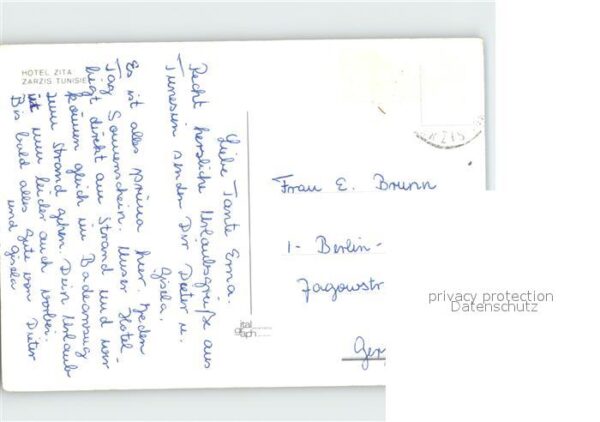 HOTEL ZITA
ZARZIS TUNISIE
Liebe Tante Erna.
Recht herzliche Urlaubsgrüße aus
Tunesien senden Dir Dieter u.
Gisela.
Es ist alles prima hier. Jeden
Tag Sonnenschein. Unser Hotel
liegt direkt am Strand und wir
können gleich im Badeanzug
zum Strand gehen. Dein Urlaub
ist nun leider auch vorbei.
Bis bald alles Gute von Dieter
und Gisela
ital
graph
Frau E. Brunn
1- Berlin-
Jagowstr
Ger
privacy protection
Datenschutz